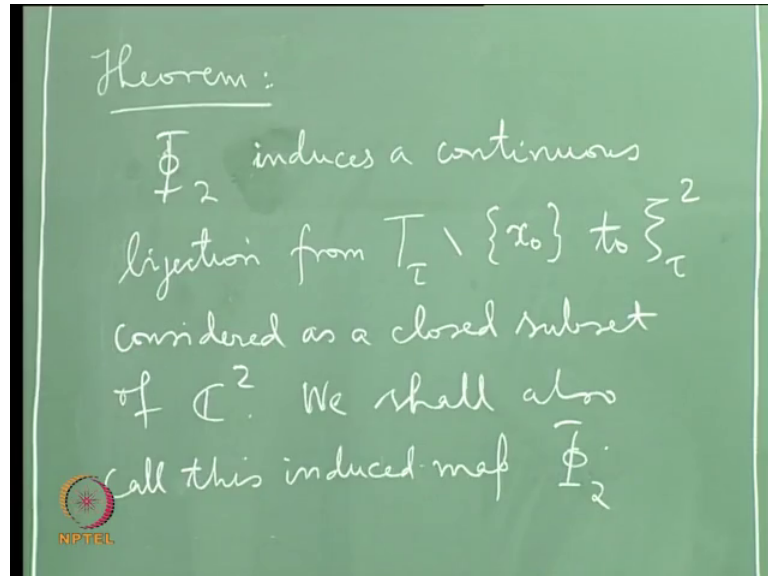 Theorem:
Φ₂ induces a continuous
bijection from T_τ \ {x₀} to ξ_τ²
considered as a closed subset
of ℂ². We shall also
call this induced map Φ₂.
NPTEL